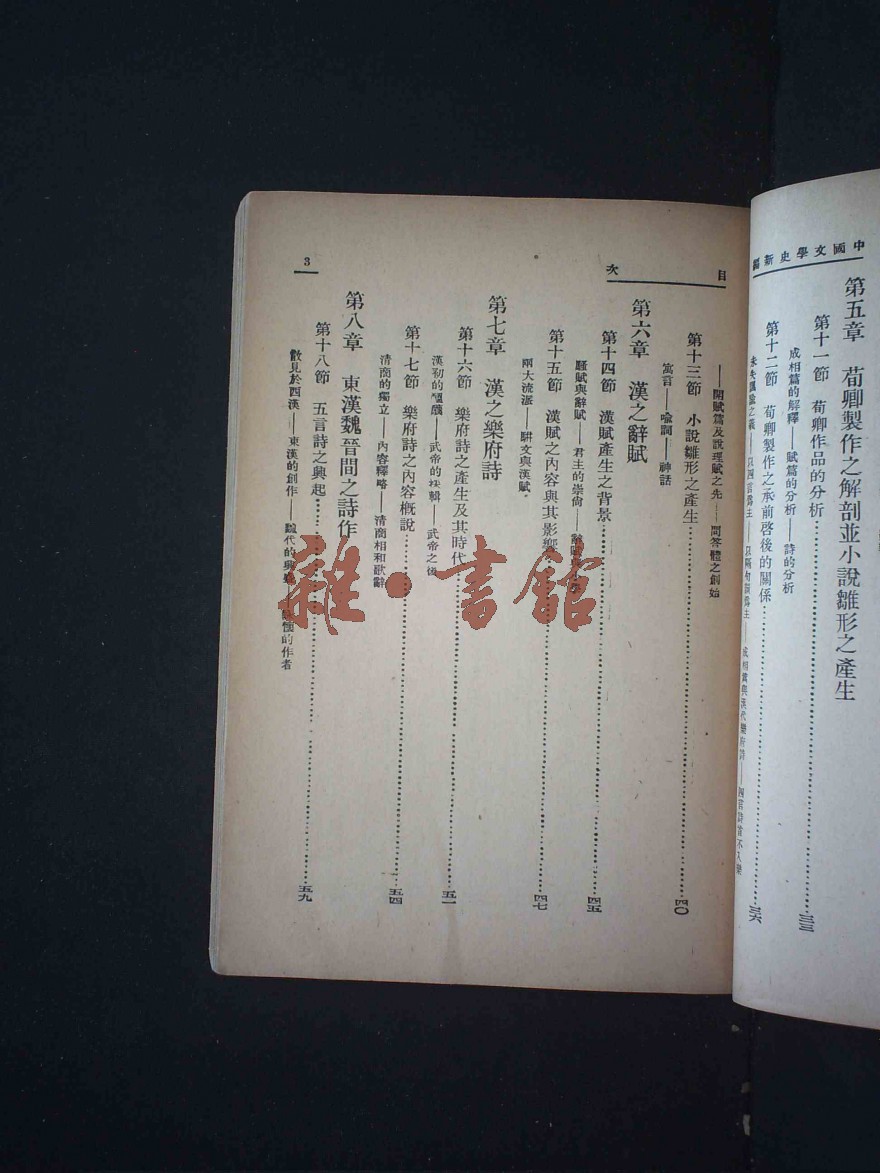 中國文學史新編
第五章　荀卿製作之解剖並小說雛形之產生
第十一節　荀卿作品的分析……三三
成相篇的解釋——賦篇的分析——詩的分析
第十二節　荀卿製作之承前啓後的關係……三六
——成相篇與漢代樂府詩——四言詩當不入樂
目次
——開賦篇及說理賦之先——問答體之創始
第十三節　小說雛形之產生……四〇
寓言——喩詞——神話
第六章　漢之辭賦
第十四節　漢賦產生之背景……四五
騷賦與辭賦——君主的崇尙——
第十五節　漢賦之內容與其影響……四七
兩大流派——駢文與漢賦
第七章　漢之樂府詩
第十六節　樂府詩之產生及其時代……五一
漢初的醞釀——武帝的采輯——武帝之後
第十七節　樂府詩之內容槪說……五四
淸商的獨立——內容釋略——淸商相和歌辭
第八章　東漢魏晉間之詩作
第十八節　五言詩之興起……五九
散見於西漢——東漢的創作——魏代的——的作者
3
雜·書館